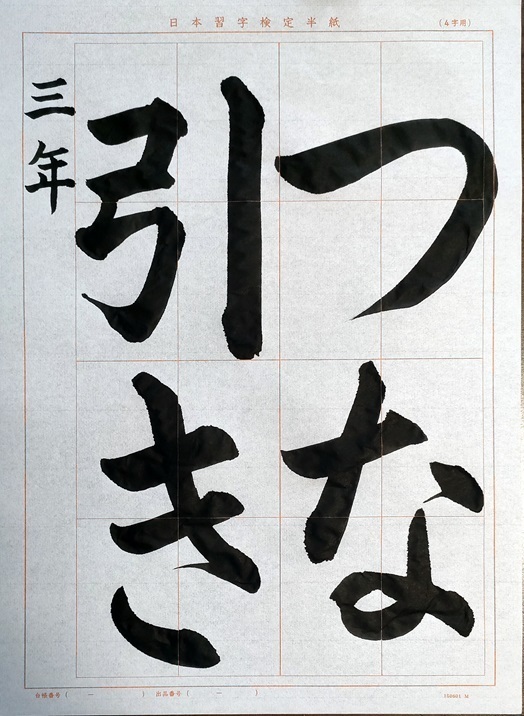 日本習字検定半紙
(4字用)
つな
引き
三年
台帳番号 ( ー )
出品番号 ( ー )